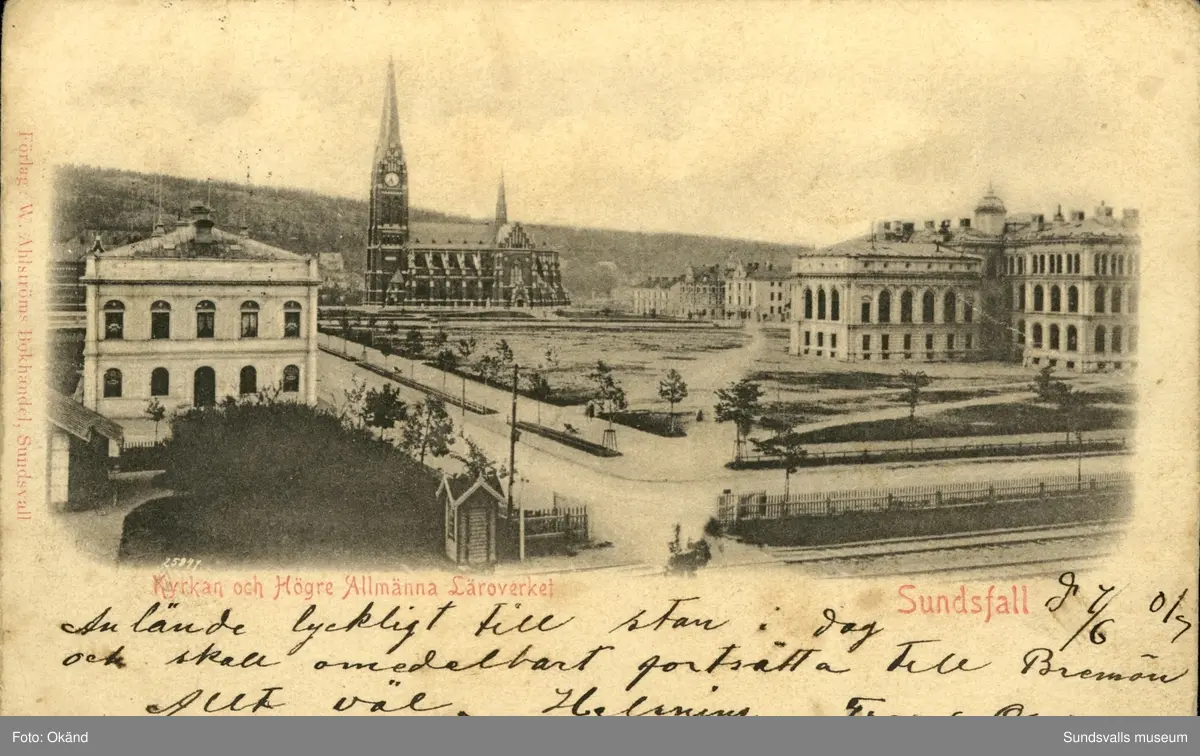 Förlag: W. Ahlströms Bokhandel, Sundsvall
25897
Kyrkan och Högre Allmänna Läroverket
Sundsfall d 7/6 01
Anlände lyckligt till stan i dag
och skall omedelbart fortsätta till Bremön
Allt väl. Helsning
Foto: Okänd
Sundsvalls museum